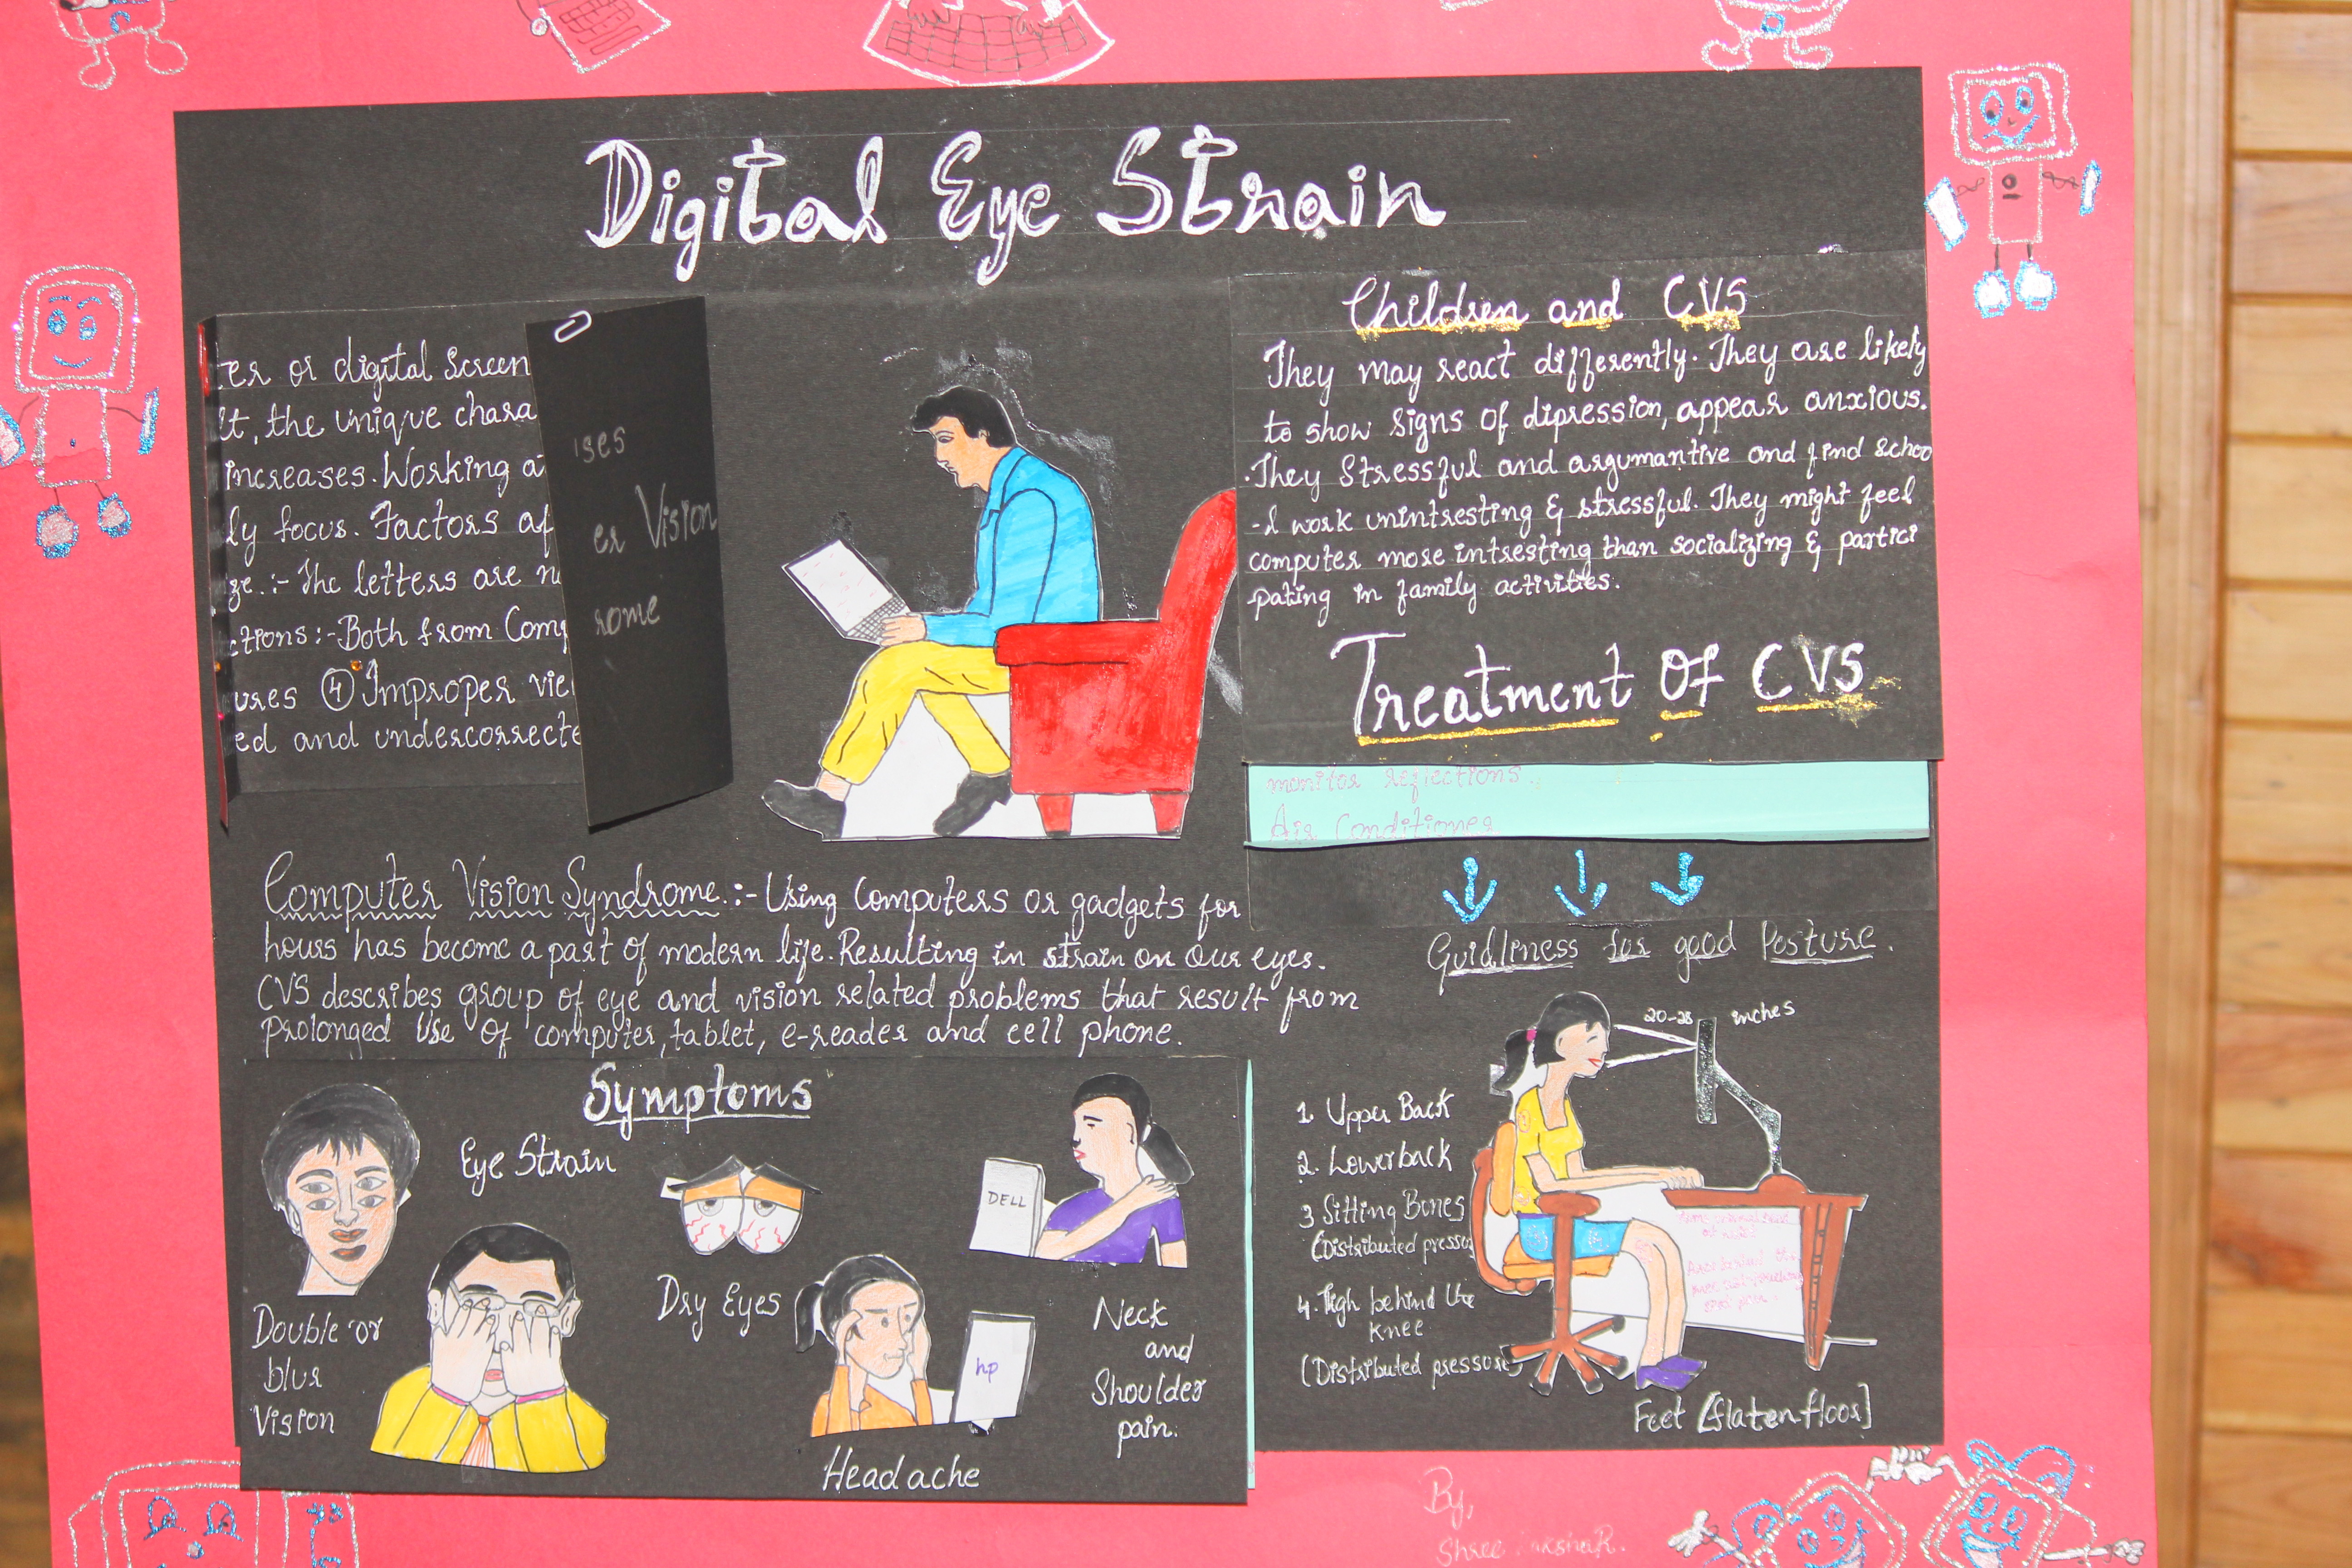 Digital Eye Strain
ter or digital Screen
lt, the unique chara
increases. Working a
ly focus. Factors af
ze.:- The letters are n
ctions:- Both from Comp
ures ④ Improper vie
ed and undercorrecte
ses
er Vision
rome
Children and CVS
They may react differently. They are likely
to show signs of dipression, appear anxious.
.They Stressful and argumantive and find schoo
-l work unintresting & stressful. They might feel
computer more intresting than socializing & partici
-pating in family activities.
Treatment Of CVS
monitor reflections.
Air Conditioner
Computer Vision Syndrome.:- Using Computers or gadgets for
hours has become a part of modern life. Resulting in strain on Our eyes.
CVS describes group of eye and vision related problems that result from
Prolonged Use Of computer, tablet, e-reader and cell phone.
Symptoms
Eye Strain
DELL
Dry Eyes
Double or
blur
Vision
hp
Neck
and
Shoulder
pain.
Headache
Guidliness for good Posture.
20-28 inches
1. Upper Back
2. Lowerback
3 Sitting Bones
(Distributed pressu
4. Thigh behind the
knee
(Distributed pressure)
Feet [flatenfloor]
By,
Shree